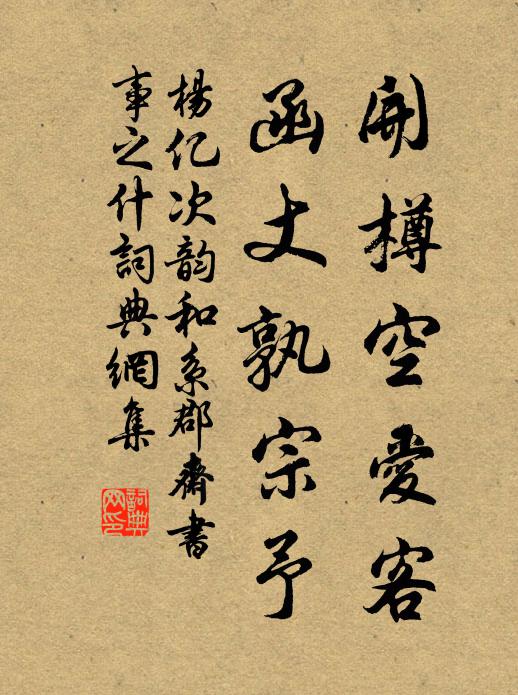 開樽空愛客
函丈孰宗予
楊億次韵和系郡齋書
事之什詞典網集
詞典网印